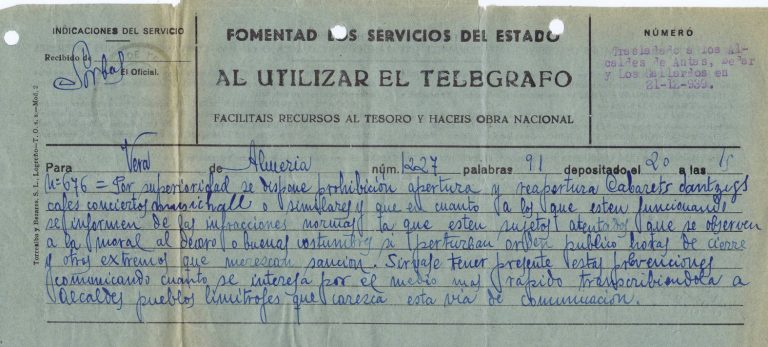 INDICACIONES DEL SERVICIO
Recibido de
Sorbas
El Oficial.
FOMENTAD LOS SERVICIOS DEL ESTADO
AL UTILIZAR EL TELEGRAFO
FACILITAIS RECURSOS AL TESORO Y HACEIS OBRA NACIONAL
NÚMERO
Trasladado a los Al-
caldes de Antas, Bedar
y Los Gallardos en
21-12-939.
Para Vera de Almeria núm. 1227 palabras 91 depositado el 20 a las 15
Nº 676 = Por superioridad se dispone prohibicion apertura y reapertura Cabarets dantzigs
cafes conciertos o similares y que en cuanto a los que esten funcionando
se informen de las infracciones normas la que esten sujetos atentados que se observen
a la moral al decoro o buenas costumbres si perturban orden publico horas de cierre
y otros extremos que merezcan sancion. Sirvase tener presente estas prevenciones
comunicando cuanto se interesa por el medio mas rapido transcribiendola a
Alcaldes pueblos limitrofes que carezca esta via de comunicación.
Torrealba y Bezares, S. L., Logroño—T. O. s. s.—Mod. 2